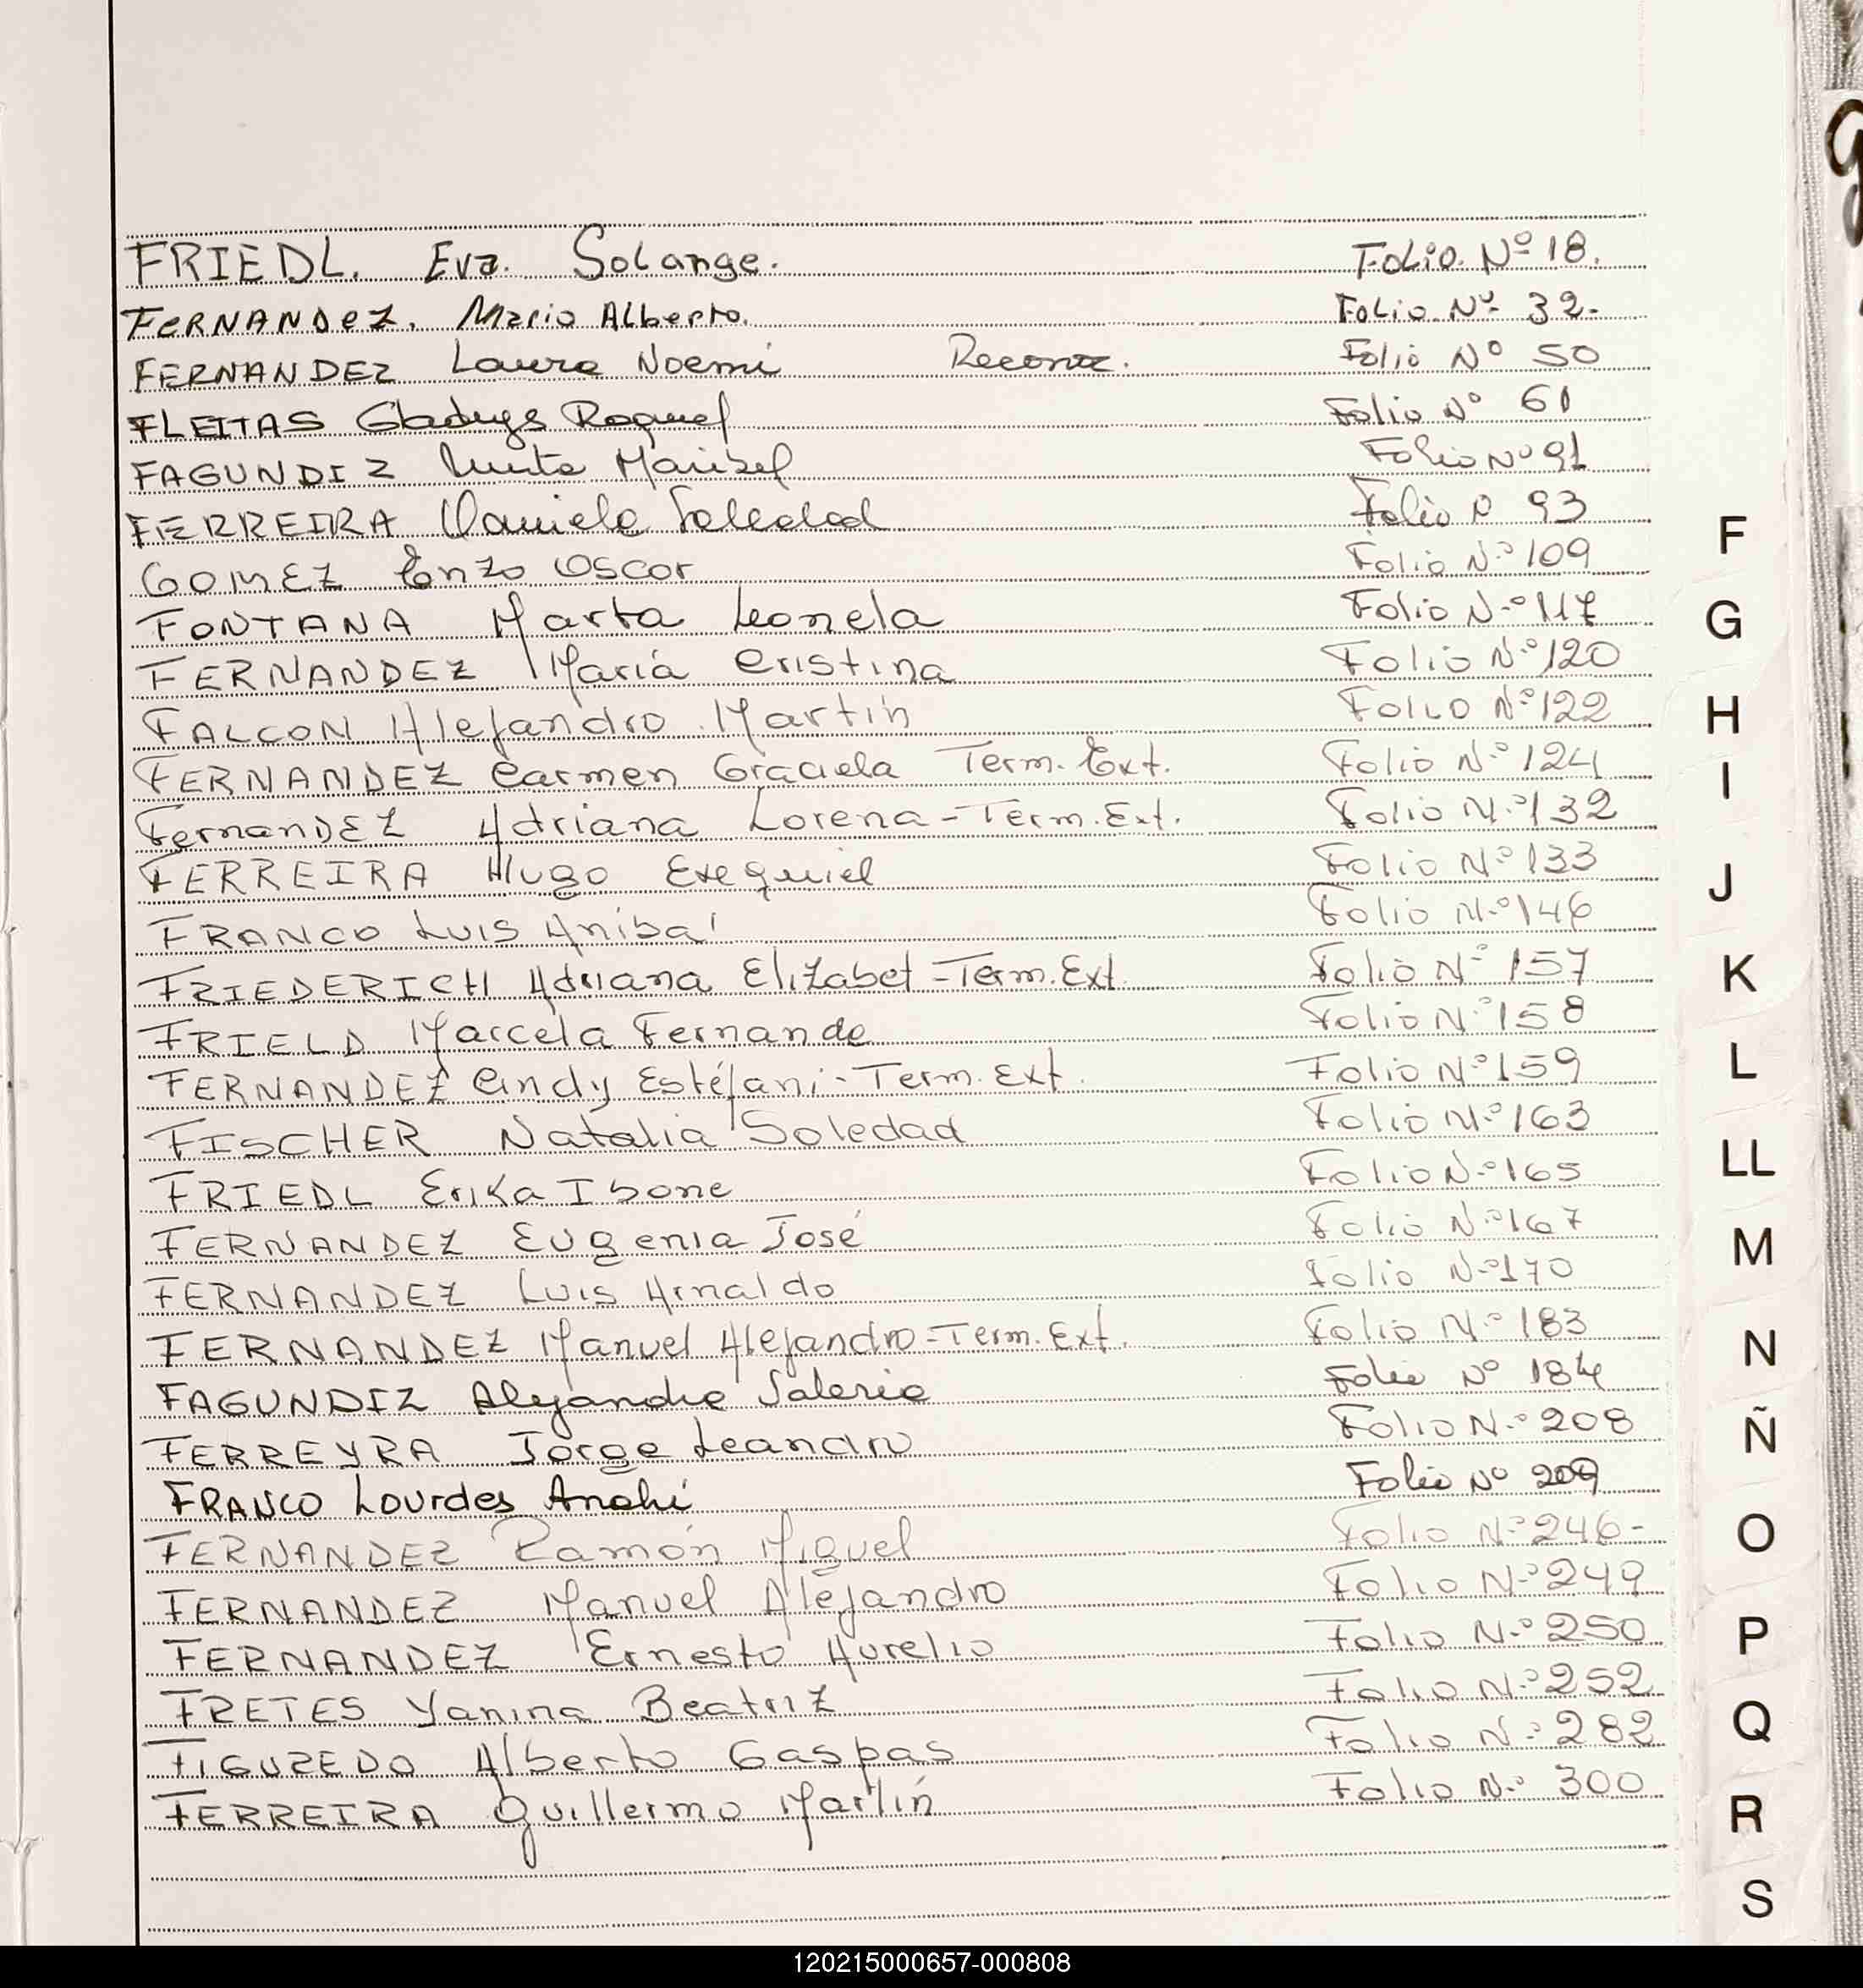 FRIEDL. Eva. Solange. Folio. Nº 18.
FERNANDEZ. Mario Alberto. Folio Nº 32.-
FERNANDEZ Laura Noemi Reconoc. Folio Nº 50
FLEITAS Gladys Raquel Folio Nº 61
FAGUNDIZ Mirta Marisel Folio Nº 91
FERREIRA Daniela Soledad Folio N 93
GOMEZ Enzo Oscar Folio N.º 109
FONTANA Marta Leonela Folio N.º 117
FERNANDEZ María Cristina Folio N.º 120
FALCON Alejandro Martin Folio N.º 122
FERNANDEZ Carmen Graciela Term. Ext. Folio N.º 124
FernanDEZ Adriana Lorena - Term. Ext. Folio N.º 132
FERREIRA Hugo Exequiel Folio N.º 133
FRANCO Luis Anibal Folio N.º 146
FRIEDERICH Adriana Elizabet - Term. Ext. Folio N.º 157
FRIELD Marcela Fernande Folio N.º 158
FERNANDEZ Cindy Estéfani - Term. Ext. Folio N.º 159
FISCHER Natalia Soledad Folio N.º 163
FRIEDL Erika Ibone Folio N.º 165
FERNANDEZ Eugenia José Folio N.º 167
FERNANDEZ Luis Arnaldo Folio N.º 170
FERNANDEZ Manuel Alejandro - Term. Ext. Folio N.º 183
FAGUNDIZ Alejandre Valerie Folio Nº 184
FERREYRA Jorge Leandro Folio N.º 208
FRANCO Lourdes Anahi Folio Nº 209
FERNANDEZ Ramón Miguel Folio N.º 246-
FERNANDEZ Manuel Alejandro Folio N.º 249
FERNANDEZ Ernesto Aurelio Folio N.º 250
FRETES Yanina Beatriz Folio N.º 252
FIGUREDO Alberto Gaspas Folio N.º 282
FERREIRA Guillermo Martín Folio N.º 300
F
G
H
I
J
K
L
LL
M
N
Ñ
O
P
Q
R
S
120215000657-000808